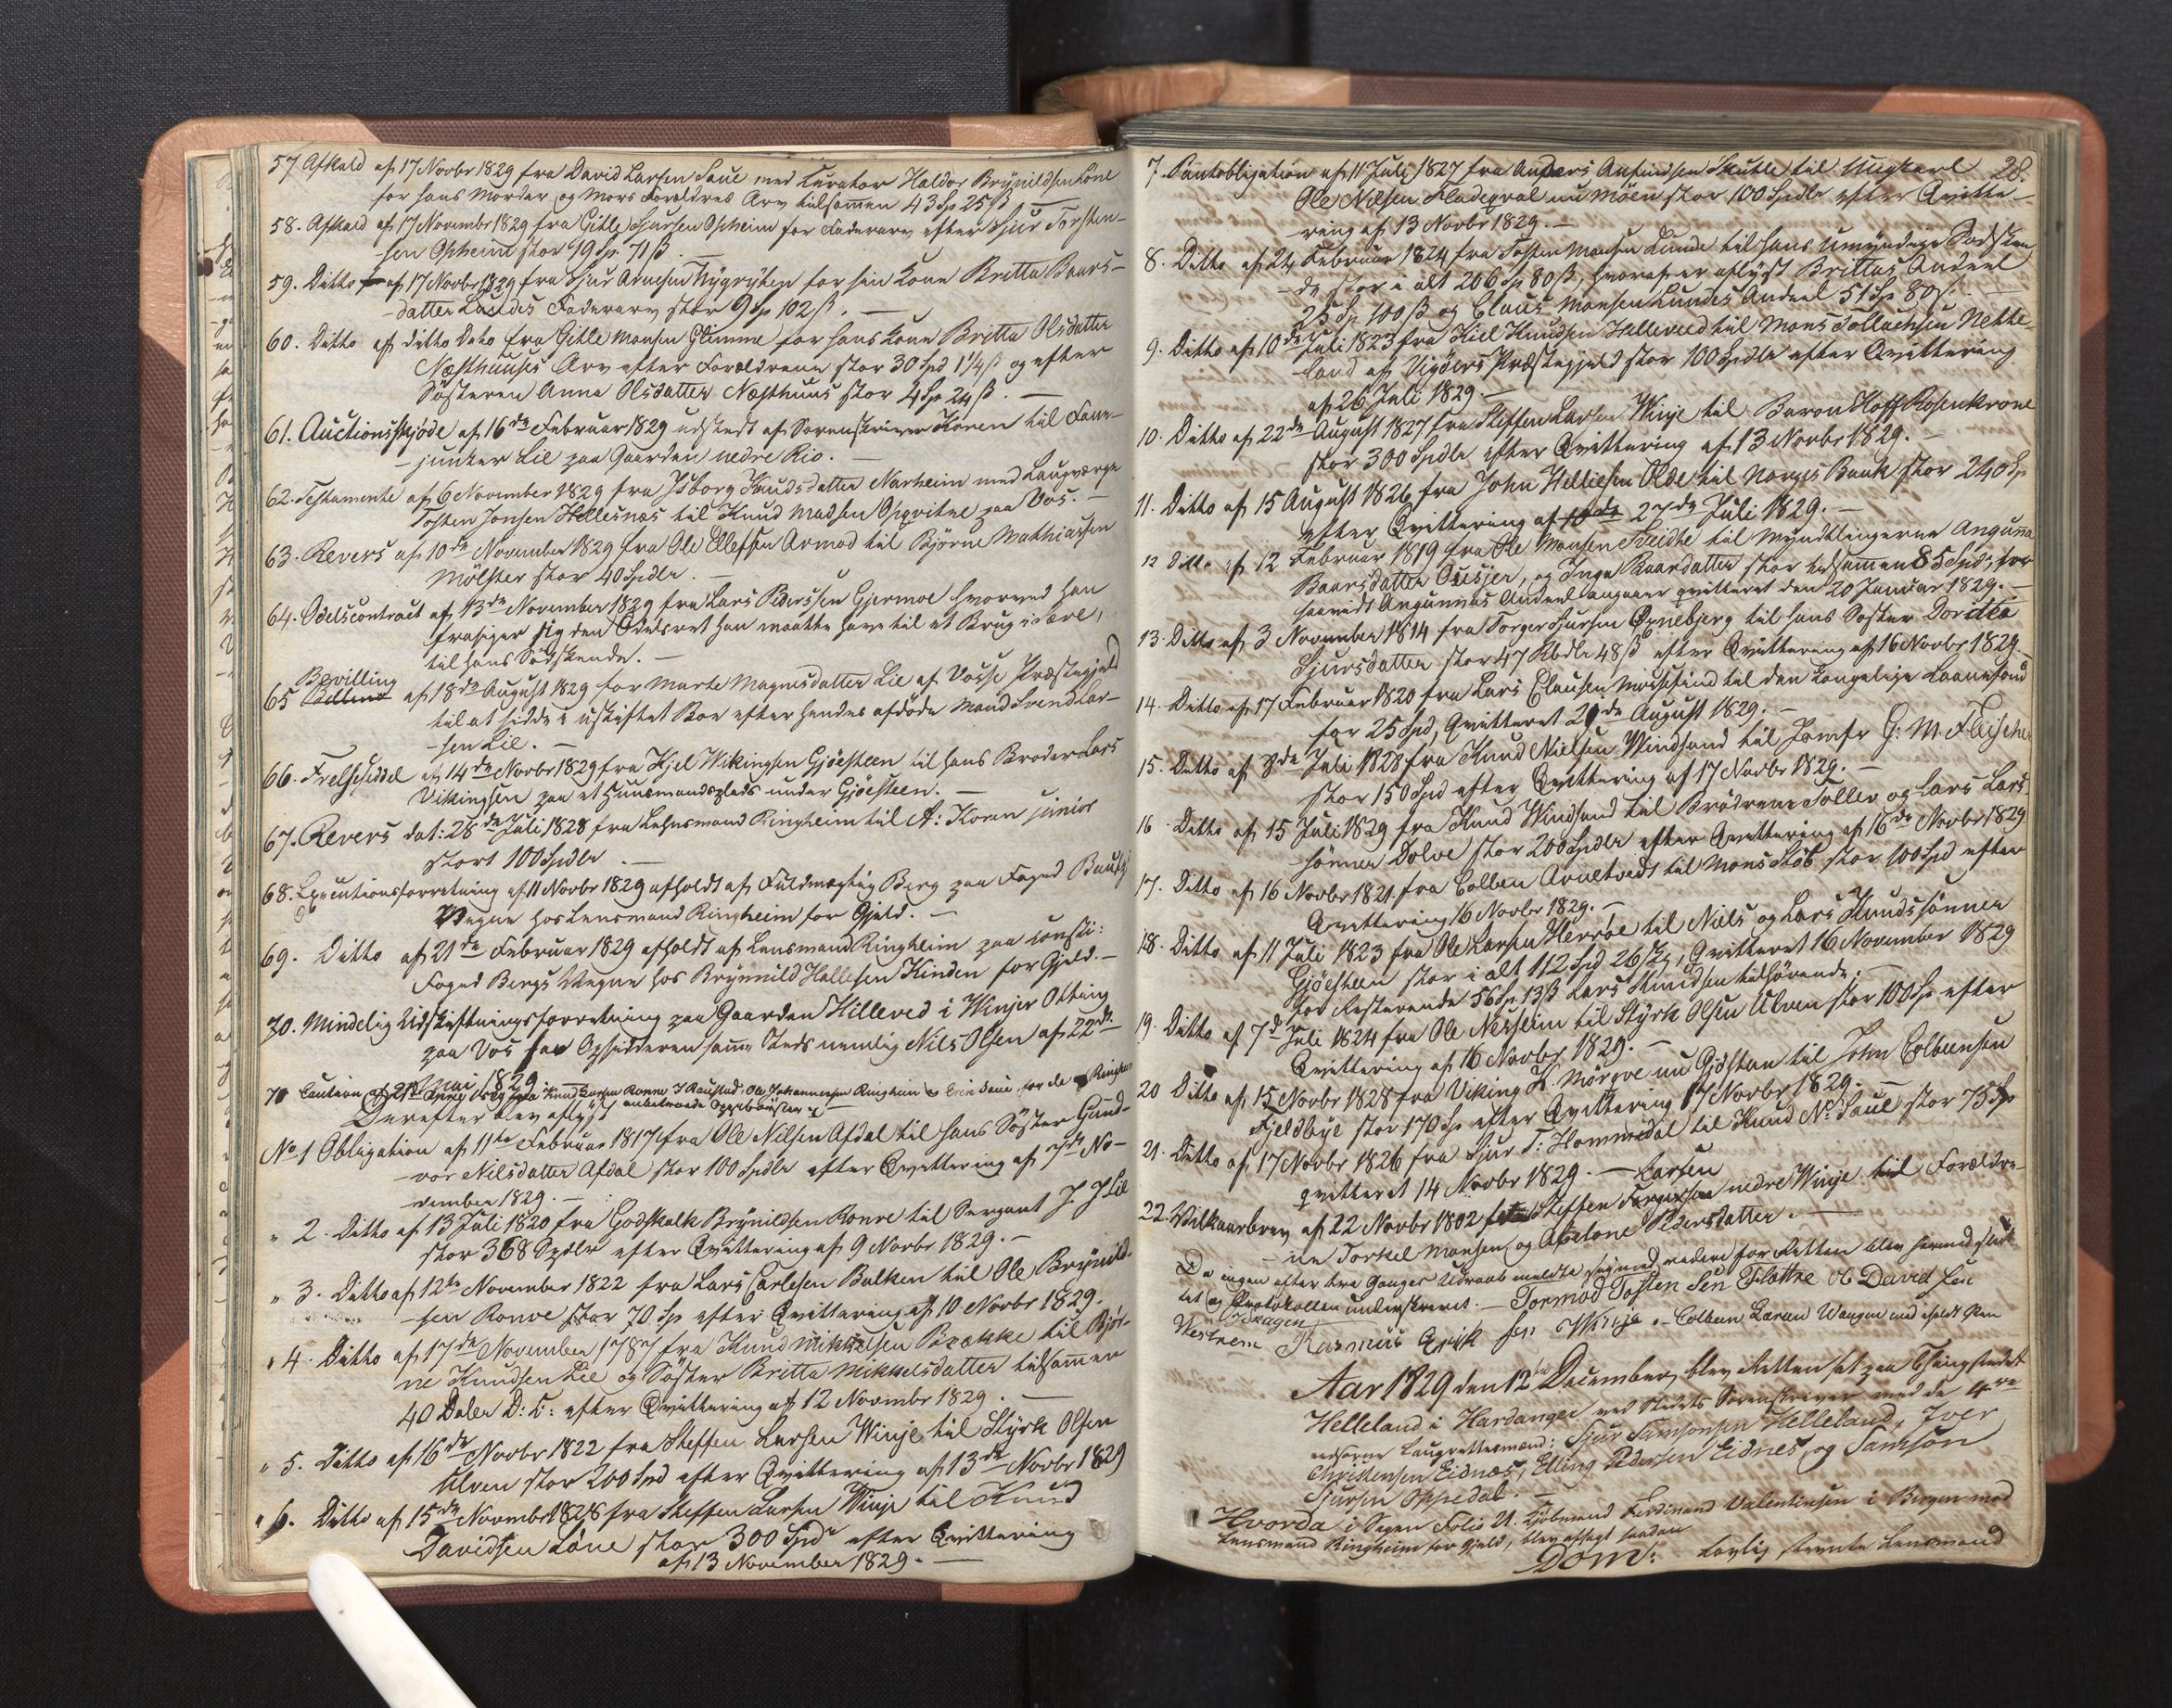 57. Afkald af 17 Novbr 1829 fra David Larsen Saue med Curator Haldor Brynildsen Lone
for hans Morder og Mors Forældres Arv tilsammen 43 Sp 25 ß
58. Afkald af 17 Novembr 1829 fra Gitle Sjursen Opheim for Faderarv efter Sjur Torsten-
sen Opheim stor 19 Sp. 71 ß. —
59. Ditto af 17 Novbr 1829 fra Sjur Arnesen Nygryten for sin Kone Britta Baars-
datter Lundes Faderarv stor 9 Sp 102 ß. —
60. Ditto af ditto Dato fra Gitle Monsen Glimme for hans Kone Britta Olsdatter
Næsthuuses Arv efter Forældrene stor 30 Spd 1¼ ß og efter
Søsteren Anna Olsdatter Næsthuus stor 4 Sp 24 ß. —
61. Auctionsskjöde af 16de Februar 1829 udstedt af Sorenskriver Koren til Fane-
junker Lie paa Gaarden nedre Rio. —
62. Testamente af 6 November 1829 fra Isborg Knudsdatter Narheim med Laugværge
Tosten Jonsen Hellesnæs til Knud Madsen Opqvitne paa Vos. —
63. Revers af 10de November 1829 fra Ole Ellefsen Armod til Björne Mathiasen
Mölster stor 40 Spdlr. —
64. Odelscontract af 13de November 1829 fra Lars Pederssen Gjermoe hvorved han
frasiger sig den Odelsret han maatte have til et Brug i Sære,
til hans Södskende. —
Bevilling
65 af 18de August 1829 for Marte Magnesdatter Lie af Vosse Præstegjeld
til at hidde i uskiftet Boe efter hendes afdöde Mand Svend Lar-
sen Lie. —
66. Frelseseddel af 14de Novbr 1829 fra Kjel Wikingsen Gjöesteen til hans Broder Lars
Vikingsen paa et Huusmandsplads under Gjöesteen. —
67. Revers dat: 28de Juli 1828 fra Lehnsmand Ringheim til A: Koren junior
stort 100 Spdlr. —
68. Executionsforretning af 11 Novbr 1829 afholdt af Fuldmægtig Berg paa Foged
Vegne hos Lensmand Ringheim for Gjeld. —
69. Ditto af 21de Februar 1829 afholdt af Lensmand Ringheim paa consti:
Foged Bergs Vegne hos Brynnild Hallesen Kinden for Gjeld. —
70. Mindelig Udskiftningsforretning paa Gaarden Hilleved i Winjer Otting
paa Vos Opsidderen samme Steds nemlig Nils Olsen af 22de
Mai 1829
71 Caution Knud Larsen Ronve, Ole Johannessen Ringheim
Derefter blev aflyst
No 1 Obligation af 11te Februar 1817 fra Ole Nilsen Afdal til hans Söster Gund-
vor Nilsdatter Afdal stor 100 Spdlr efter Qvittering af 7de No-
vember 1829. —
" 2. Ditto af 13 Juli 1820 fra Godskalk Brynildsen Ronve til Sergant J. J Lie
stor 368 Spdlr efter Qvittering af 9 Novbr 1829. —
" 3. Ditto af 12te November 1822 fra Lars Carlesen Balken til Ole Brynild-
sen Ronve stor 70 Sp efter Qvittering af 10 Novbr 1829.
" 4. Ditto af 17de November 1787 fra Knud Mikkelsen Brække til Björ-
ne Knudsen Lie og Söster Britta Mikkelsdatter tilsammen
40 Daler D: C: efter Qvittering af 12 Novembr 1829. —
" 5. Ditto af 16de Novbr 1822 fra Steffen Larsen Winje til Styrk Olsen
Ulven stor 200 Spd efter Qvittering af 13de Novbr 1829
" 6. Ditto af 15de Novembr 1828 fra Steffen Larsen Winje til Knud
Davidsen Löne stor 300 Spdr efter Qvittering
af 13 November 1829. —
28.
7. Pantobligation af 11 Juli 1827 fra Anders Anfindsen Skutle til Ungkarl
Ole Nilsen Fladeqval nu Möen stor 100 Spdlr efter Qvitte-
ring af 13 Novbr 1829. —
8. Ditto af 24 Februar 1824 fra Tosten Monsen Lunde til hans Umyndige Södsken
de stor i alt 206 Sp 80 ß, hvoraf er aflyst Brittas Andeel
25 Sp. 100 ß og Claus Monsen Lundes Andeel 51 Sp 80 ß. —
9. Ditto af 10de Juli 1823 fra Kiel Knudsen Helleved til Mons Tollachsen Nette-
land af Vigöers Præstegjeld stor 100 Spdlr efter Qvittering
af 26 Juli 1829. —
10. Ditto af 22de August 1827 fra Steffen Larsen Winje til Baron Hoff Rosenkrone
stor 300 Spdlr efter Qvittering af 13 Novbr 1829. —
11. Ditto af 15 August 1826 fra John Helliesen Olde til Norges Bank stor 240 Sp
efter Qvittering af 27de Juli 1829. —
12 Ditto af 12 Februar 1819 fra Ole Monsen til Myndtlingerne Angunna
Baarsdatter, og Inga Baardatter stor tilsammen 85 Spd, for
saavidt Angunnas Andeel angaaer qvitteret den 20 Januar 1829. —
13. Ditto af 3 November 1814 fra Torger Sjursen til hans Söster Dordea
Sjursdatter stor 47 Rbdlr 48 ß efter Qvittering af 16 Novbr 1829.
14. Ditto af 17 Februar 1820 fra Lars Clausen Mossefind til den kongelige Laanefond
for 25 Spd, Qvitteret 20de August 1829. —
15. Ditto af 8de Juli 1828 fra Knud Nielsen Windsand til Jomfr G: M. Fleischer
stor 150 Spd efter Qvittering af 17 Novbr 1829. —
16. Ditto af 15 Juli 1829 fra Knud Windsand til Brödrene Tollev og Lars Lars-
sönner Dolve stor 200 Spdlr efter Qvittering af 16de Novbr 1829
17. Ditto af 16 Novbr 1821 fra Colben Arnetvedt til Mons Stöb stor 100 Spd efter
Qvittering 16 Novbr 1829. —
18. Ditto af 11 Juli 1823 fra Ole Larsen Herröe til Niels og Lars Knudssönner
Gjöesteen stor i alt 112 Spd 26 ß, Qvitteret 16 November 1829
for Resterende 56 Sp. 13 ß Lars Knudsen tilhörende. —
19. Ditto af 7de Juli 1824 fra Ole Nesheim til Styrk Olsen Ulven stor 100 Sp efter
Qvittering af 16 Novbr 1829. —
20 Ditto af 15 Novbr 1828 fra Viking K. Mörqve nu Gjösten til John Colbensen
Fjeldbye stor 170 Sp efter Qvittering 17 Novbr 1829. —
21. Ditto af 17 Novbr 1826 fra Sjur T: Hommedal til Knud N: Saue stor 75 Sp
qvitteret 14 Novbr 1829. —
Larsen
22. Vilkaarbrev af 22 Novbr 1802 fra Steffen nedre Winje til Forældre-
ne Torkel Monsen og Abelone Pedersdatter. —
Da ingen efter tre Ganges Udraab meldte sig med videre for Retten blev hermed slut-
tet og Protokollen underskrevet. — Tormod Tosten Sen Flattre David
Westrem Rasmus Erik sen Winje. — Colben Larsen
Aar 1829 den 12te December blev Retten sat paa Thingstedet
Helleland i Hardanger ved Stedets Sorenskriver med de 4re
edsorne Laugrettesmænd: Sjur Samsonsen Helleland, Iver
Christensen Eidnæs, Elling Pedersen Eidnes og Samson
Sjursen Oppedal. —
Hvorda i Sagen Folio 21. Kjöbmand Ferdinand Valentinsen i Bergen mod
Lensmand Ringheim for Gjeld, blev afsagt saadan
Dom: Lovlig stevnte Lensmand